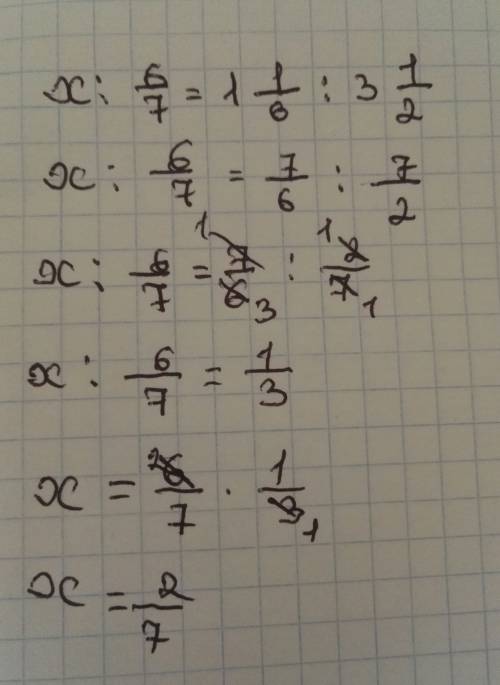 x : 6/7 = 1 1/6 : 3 1/2
x : 6/7 = 7/6 : 7/2
x : 6/7 = 1 7/6 3 : 1 2/7 1
x : 6/7 = 1/3
x = 2 6/7 · 1/3 1
x = 2/7